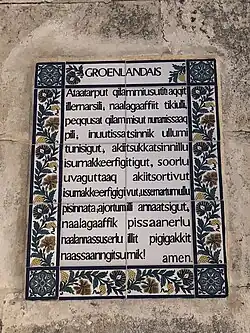 GROENLANDAIS
Ataatarput qilammiusutit aqqit
illernarsili, naalagaaffiit tikiulli,
peqqusat qilammisut nunamissaaq
pili, inuutissatsinnik ullumi
tunisigut, akiitsukkatsinnillu
isumakkeerfigitigut, soorlu
uvaguttaaq akiitsortivut
isumakkeerfigigivut, ussernartumullu
pisinnata, ajortumilli annaatsigut,
naalagaaffik pissaanerlu
naalannassuserlu illit pigigakkit
naassaanngitsumik! amen.